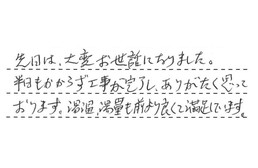 先日は、大変お世話になりました。
半日もかからず工事が完了し、ありがたく思って
おります。湯温、湯量も前より良くて満足しています。